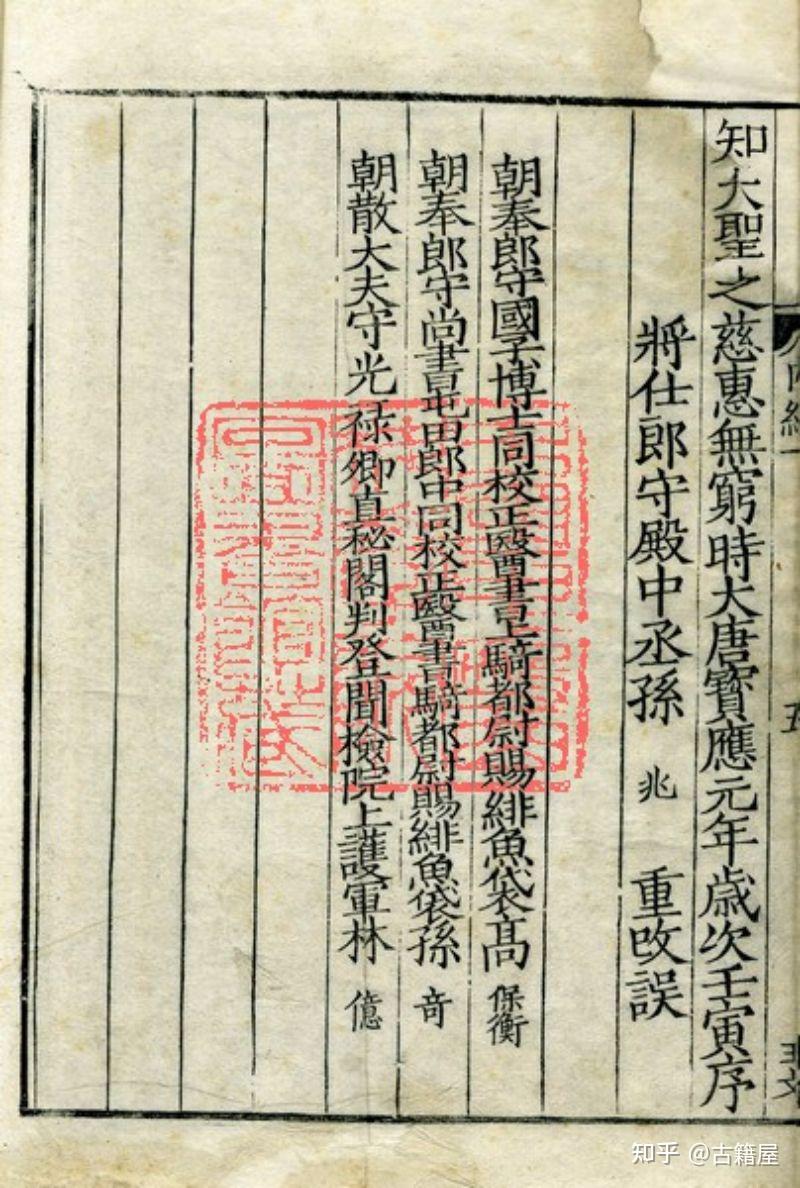 知大聖之慈惠無窮時大唐寶應元年歲次壬寅序
將仕郎守殿中丞孫 兆 重改誤
朝奉郎守國子博士同校正醫書上騎都尉賜緋魚袋高 保衡
朝奉郎守尚書屯田郎中同校正醫書騎都尉賜緋魚袋孫 奇
朝散大夫守光祿卿直秘閣判登聞檢院上護軍林 億
五
知乎 @古籍屋